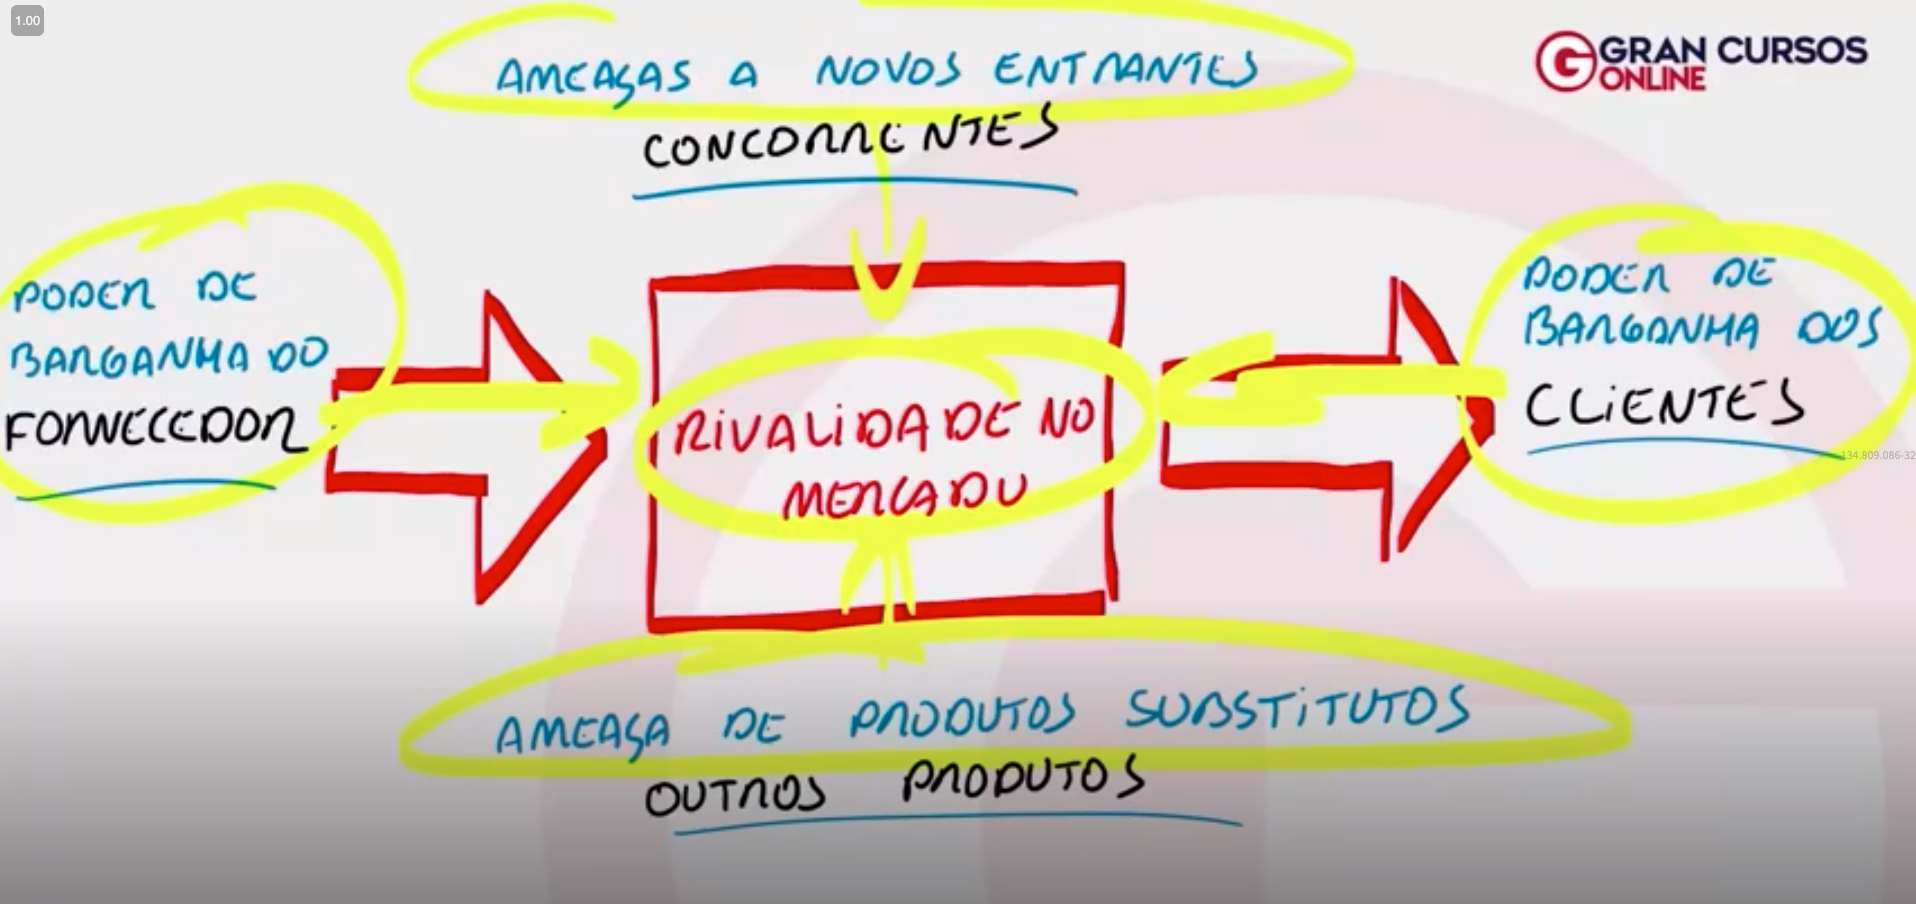 1.00
AMEAÇAS A NOVOS ENTRANTES
GRAN CURSOS
ONLINE
CONCORRENTES
PODER DE
BARGANHA DO
FORNECEDOR
RIVALIDADE NO
MERCADO
PODER DE
BARGANHA DOS
CLIENTES
134.809.086-32
AMEAÇA DE PRODUTOS SUBSTITUTOS
OUTROS PRODUTOS